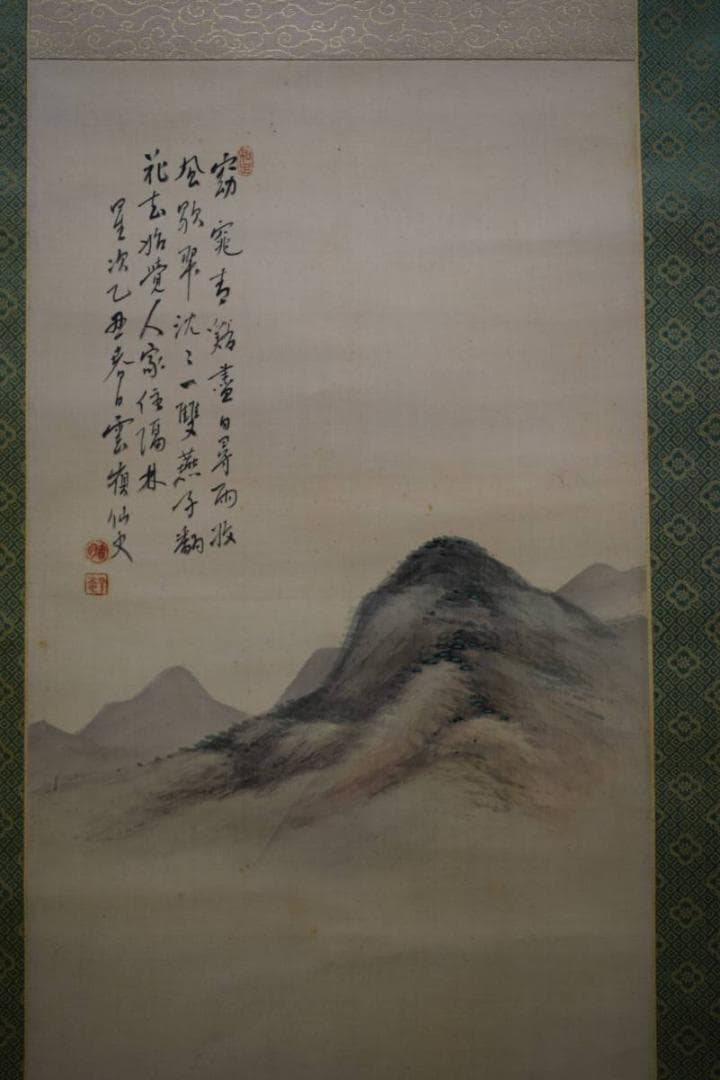 窈窕青谿盡日尋雨收
風歇翠沈々一雙燕子翻
花去始覺人家住隔林
星次乙丑春日雲嶺仙史